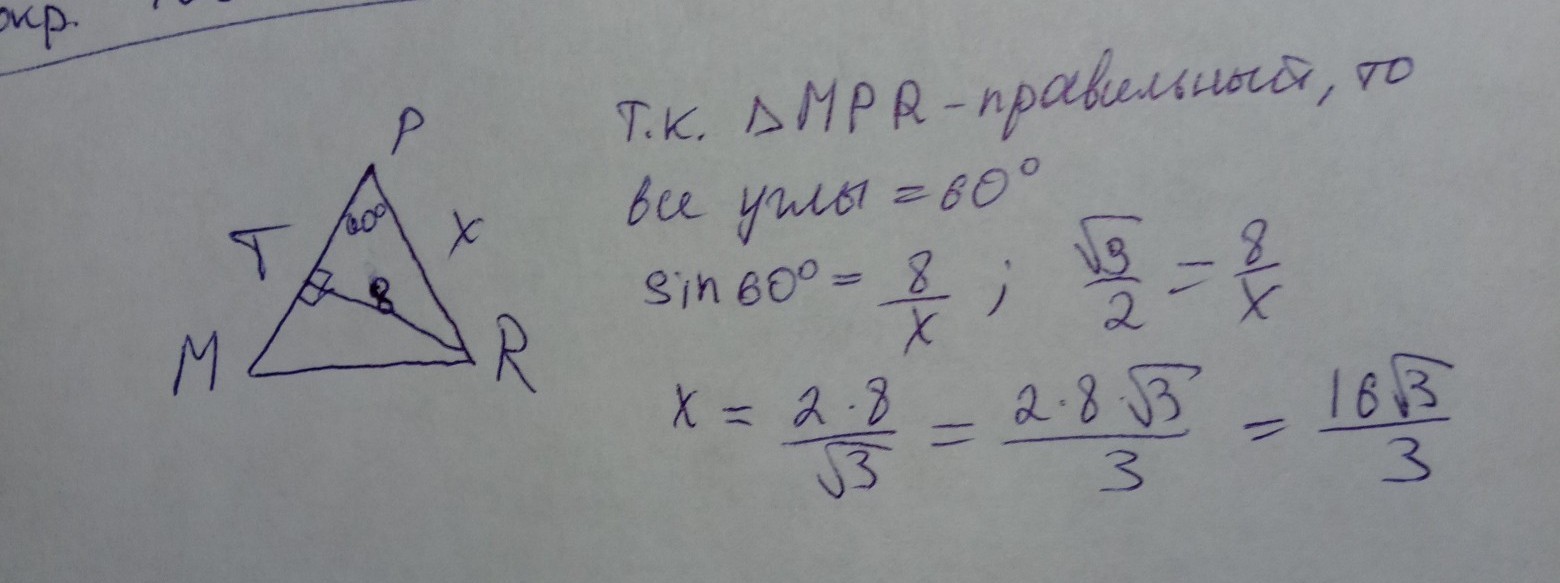 окр.
P
60°
T
x
8
M
R
Т.к. △MPR - правильный, то
все углы = 60°
sin 60° = 8/x ; √3/2 = 8/x
x = 2·8/√3 = 2·8·√3/3 = 16√3/3